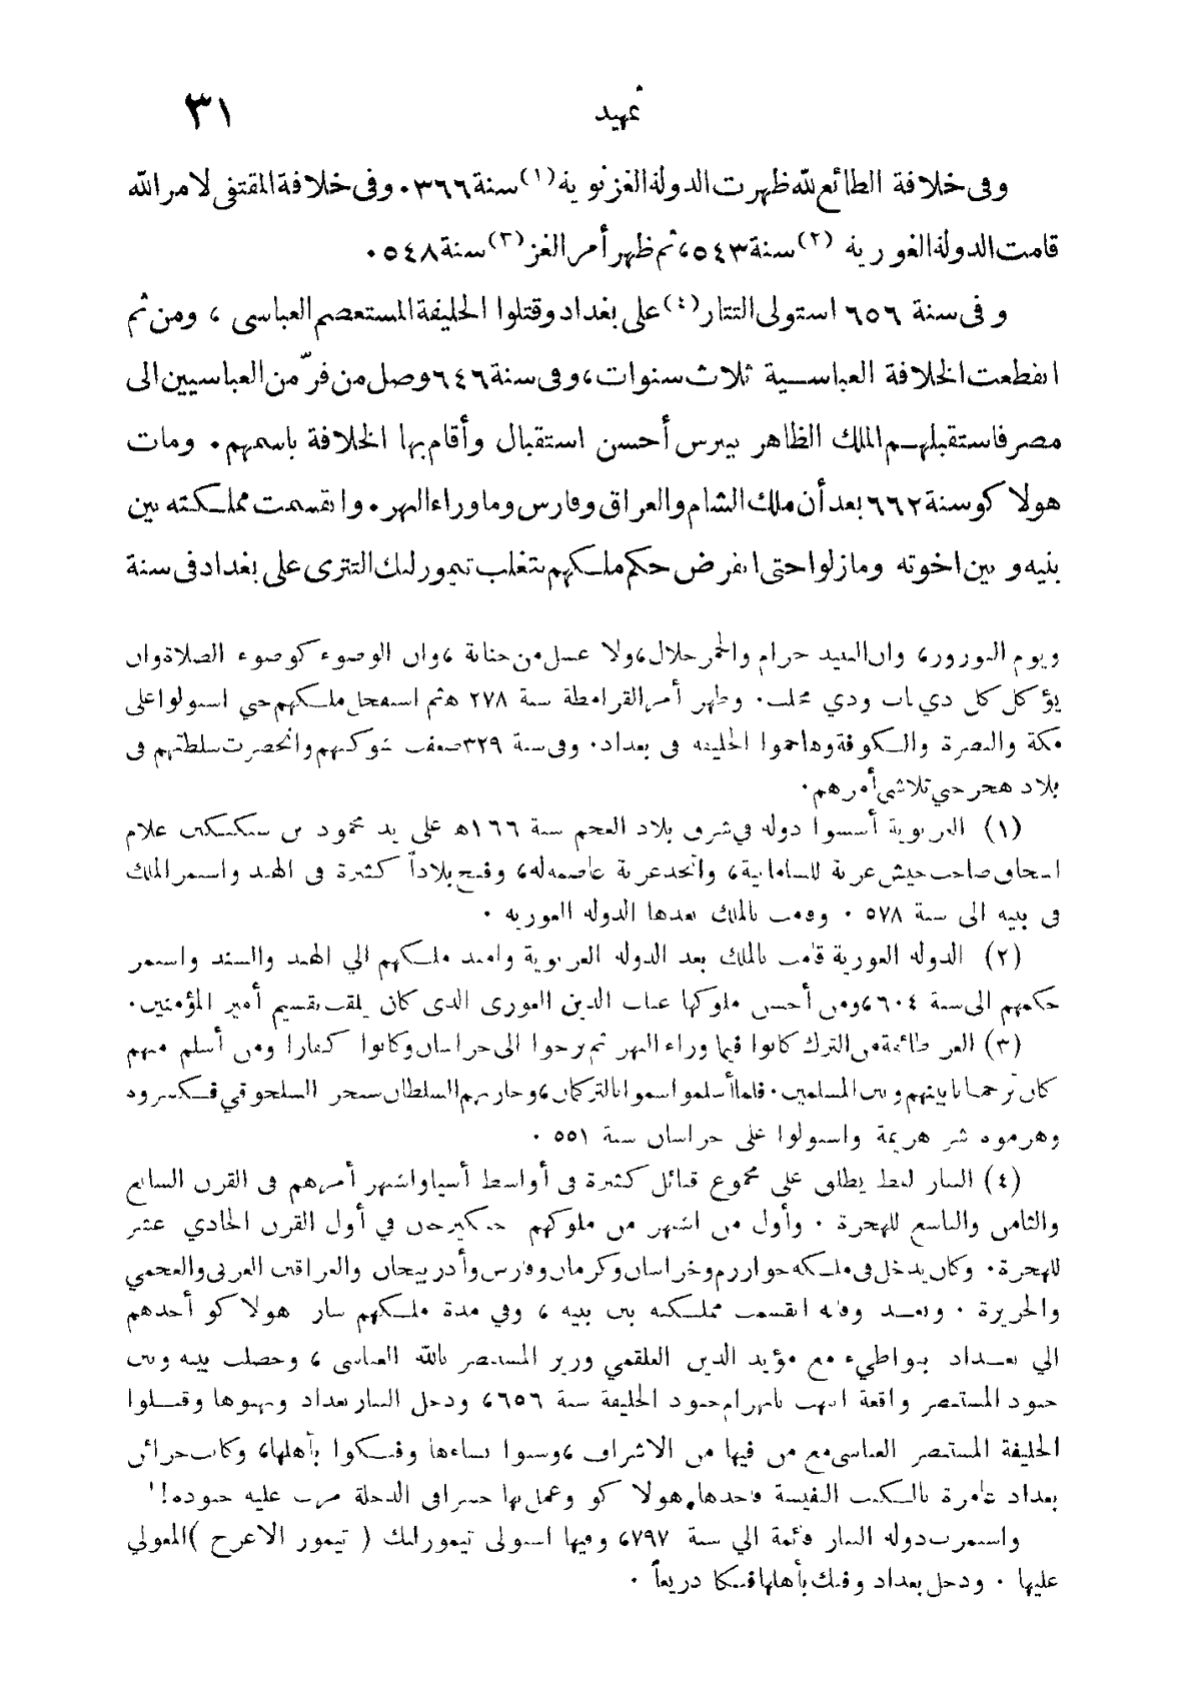 تمهيد ٣١
وفى خلافة الطائع لله ظهرت الدولة الغزنوية (١) سنة ٣٦٦٠ وفى خلافة المقتفى لامر الله
قامت الدولة الغورية (٢) سنة ٥٤٣، ثم ظهر أمر الغز (٣) سنة ٥٤٨٠
وفى سنة ٦٥٦ استولى التتار (٤) على بغداد وقتلوا الخليفة المستعصم العباسى ، ومن ثم
انقطعت الخلافة العباسية ثلاث سنوات، وفى سنة ٦٤٦ وصل من فرّ من العباسيين الى
مصر فاستقبلهم الملك الظاهر بيبرس أحسن استقبال وأقام بها الخلافة باسمهم ٠ ومات
هولا كو سنة ٦٦٢ بعد أن ملك الشام والعراق وفارس وما وراء النهر ٠ وانقسمت مملكته بين
بنيه و بين اخوته وما زلوا حتى انقرض حكم ملكهم بتغلب تيمورلنك التترى على بغداد فى سنة
ويوم النوروز، وان النبيذ حرام والخمر حلال، ولا غسل من جنابة ، وان الوضوء كوضوء الصلاة وان
يؤكل كل ذي ناب وذي مخلب ٠ وظهر أمر القرامطة سنة ٢٧٨ ه ثم استفحل ملكهم حتي استولوا على
مكة والبصرة والكوفة وهاجموا الخليفة فى بغداد ٠ وفى سنة ٣٢٩ ضعفت شوكتهم وانحصرت سلطتهم فى
بلاد هجر حتي تلاشى أمرهم ٠
(١) الغزنوية أسسوا دولة في شرق بلاد العجم سنة ١٦٦ ه على يد محمود بن سبكتكين غلام
اسحاق صاحب جيش غزنة للسامانية، واتخذ غزنة عاصمة له، وفتح بلاداً كثيرة فى الهند واستمر الملك
فى بنيه الى سنة ٥٧٨ ٠ وقامت بالملك بعدها الدولة الغورية ٠
(٢) الدولة الغورية قامت بالملك بعد الدولة الغزنوية وامتد ملكهم الي الهند والسند واستمر
حكمهم الى سنة ٦٠٤، ومن أحسن ملوكها غياث الدين الغورى الذى كان يلقب بقسيم أمير المؤمنين ٠
(٣) الغز طائفة من الترك كانوا فيما وراء النهر ثم نزحوا الى خراسان وكانوا كفارا ومن أسلم منهم
كان ترجمانا بينهم وبين المسلمين ٠ فلما أسلموا سموا بالتركمان، وحاربهم السلطان سنجر السلجوقي فكسروه
وهزموه شر هزيمة واستولوا على خراسان سنة ٥٥١ ٠
(٤) التتار لفظ يطلق على مجموع قبائل كثيرة فى أواسط أسيا واشتهر أمرهم فى القرن السابع
والثامن والتاسع للهجرة ٠ وأول من اشتهر من ملوكهم جنكيزخان في أول القرن الحادي عشر
للهجرة ٠ وكان يدخل فى ملكه خوارزم وخراسان وكرمان وفارس وأذربيجان والعراقين العربى والعجمي
والجزيرة ٠ وبعد وفاته انقسمت مملكته بين بنيه ، وفي مدة ملكهم سار هولا كو أحدهم
الي بغداد بتواطيء مع مؤيد الدين العلقمي وزير المستنصر بالله العباسى ، وحصلت بينه وبين
جنود المستنصر واقعة انتهت بانهزام جنود الخليفة سنة ٦٥٦، ودخل التتار بغداد ونهبوها وقتلوا
الخليفة المستنصر العباسى مع من فيها من الاشراف ، وسبوا نساءها وفتكوا بأهلها، وكانت خزائن
بغداد عامرة بالكتب النفيسة فأخذها هولا كو وعمل بها جسرا فى الدجلة مرت عليه جنوده!!
واستمرت دولة التتار قائمة الي سنة ٧٩٧، وفيها استولى تيمورلنك ( تيمور الاعرج ) المغولي
عليها ٠ ودخل بغداد وفتك بأهلها فتكا ذريعاً ٠